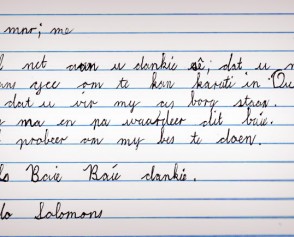 mnr; me
net aan u dankie sê, dat u
om te kan karate in
dat u vir my as borg staan.
ma en pa waardeer dit baie.
probeer om my bes te doen.
Baie Baie dankie.
Solomons